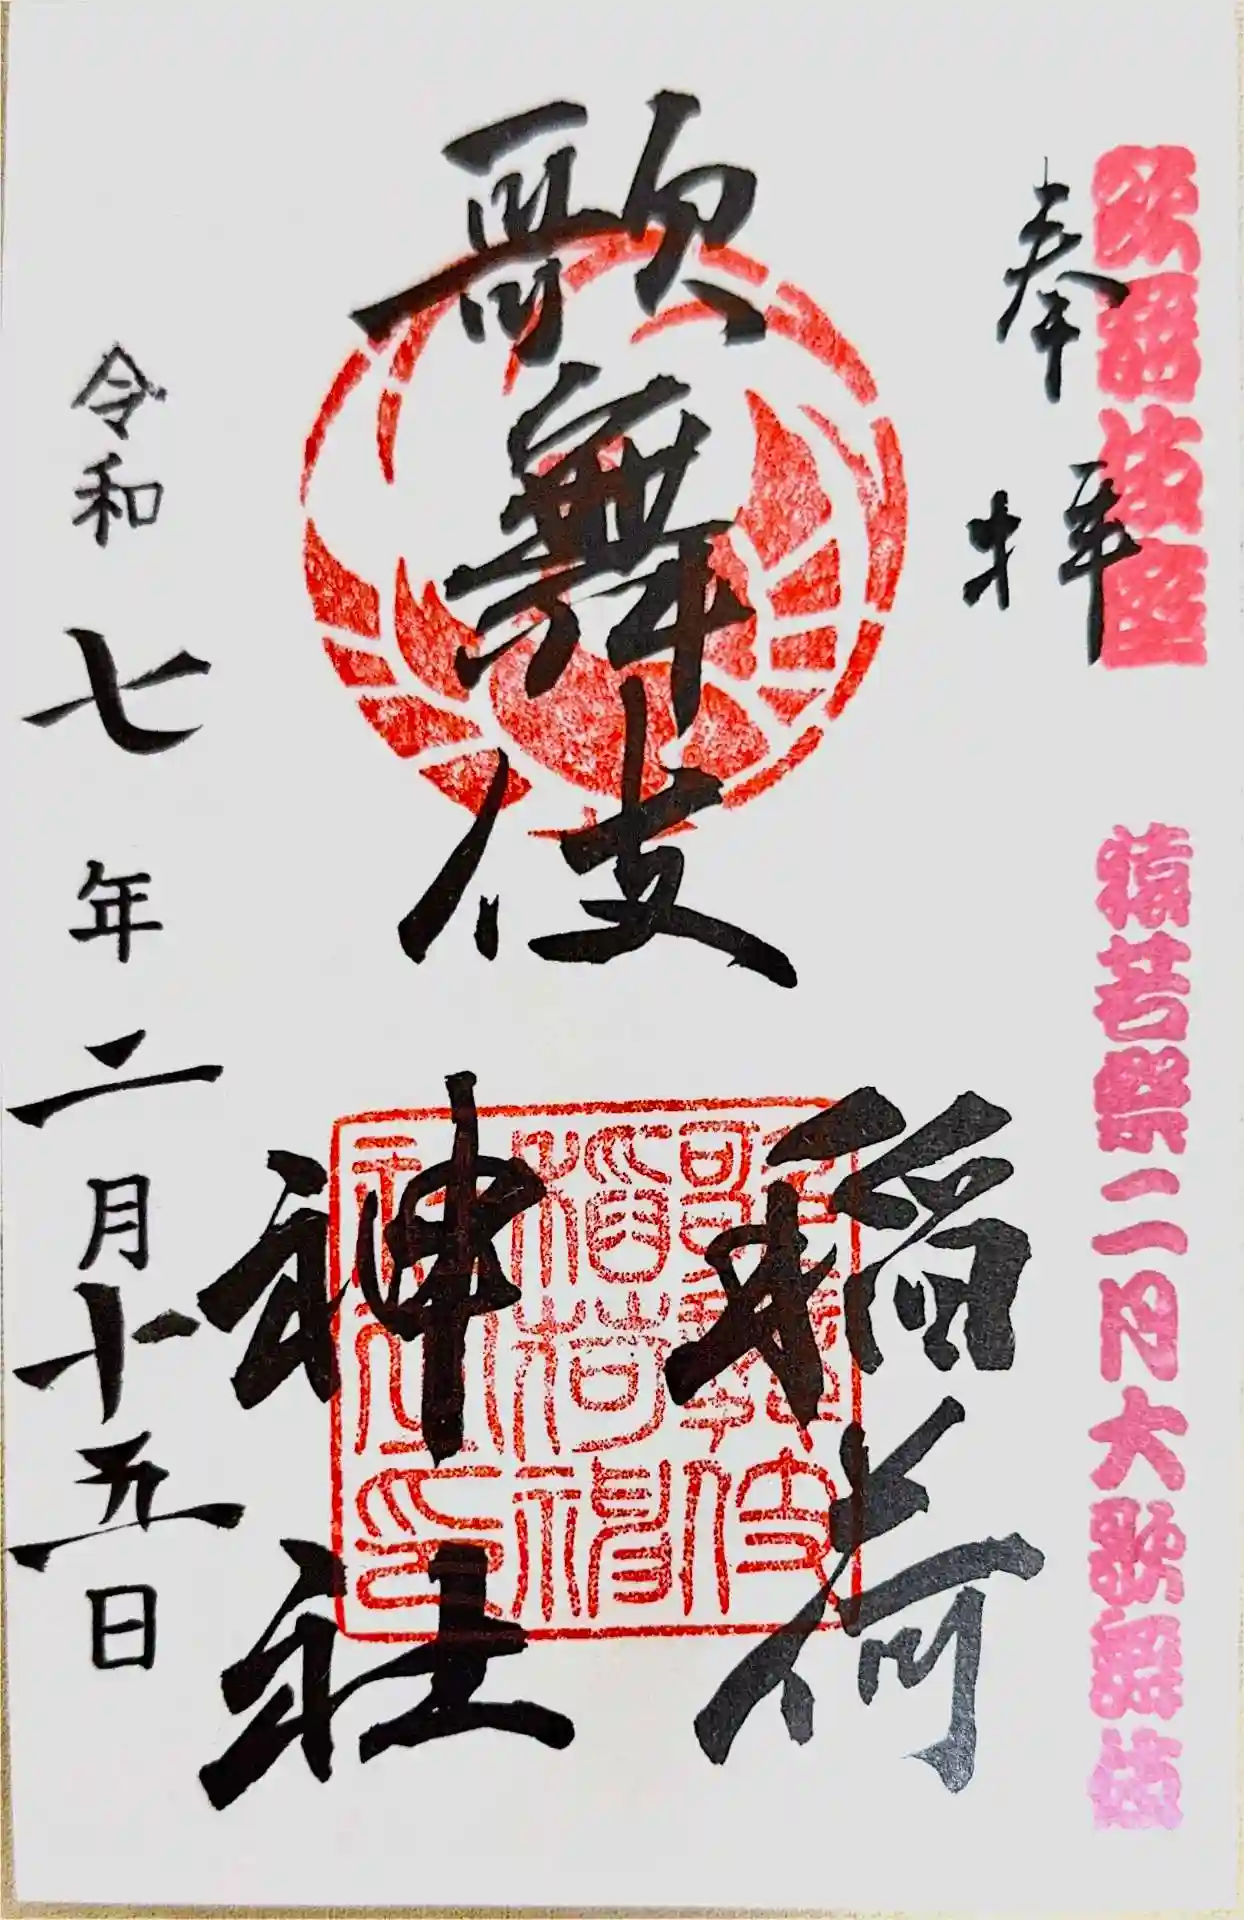 歌舞伎座
猿若祭二月大歌舞伎
奉拝
歌舞伎
稲荷
神社
歌舞伎
稲荷神
社印
令和七年二月十五日